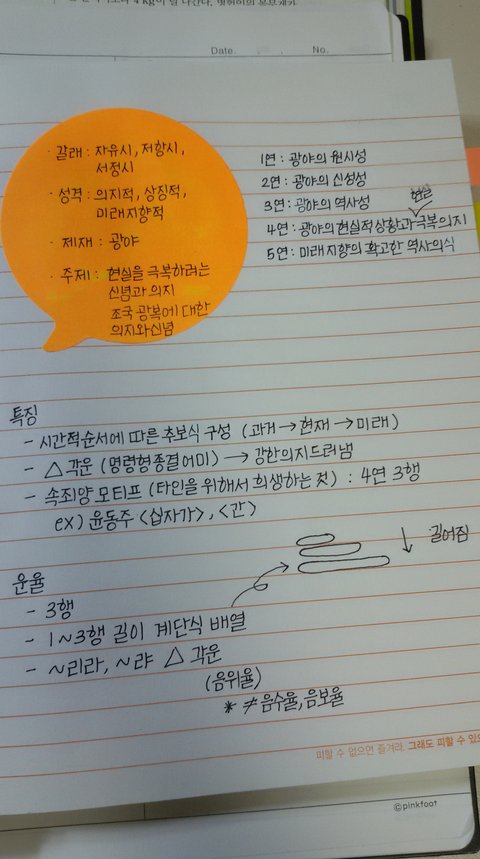 Date.
No.
· 갈래 : 자유시, 저항시,
서정시
· 성격 : 의지적, 상징적,
미래지향적
· 제재 : 광야
· 주제 : 현실을 극복하려는
신념과 의지
조국 광복에 대한
의지와 신념
1연 : 광야의 원시성
2연 : 광야의 신성성
3연 : 광야의 역사성
4연 : 광야의 현실적 상황과 극복의지
5연 : 미래 지향의 확고한 역사의식
특징
- 시간적순서에 따른 추보식 구성 (과거 → 현재 → 미래)
- △ 각운 (명령형종결어미) → 강한의지드러냄
- 속죄양 모티프 (타인을 위해서 희생하는 것) : 4연 3행
ex) 윤동주 <십자가>, <간>
길어짐
운율
- 3행
- 1~3행 길이 계단식 배열
- ~리라, ~랴 △ 각운
(음위율)
* ≠ 음수율, 음보율
피할 수 없으면 즐겨라. 그래도 피할 수 있
©pinkfoot